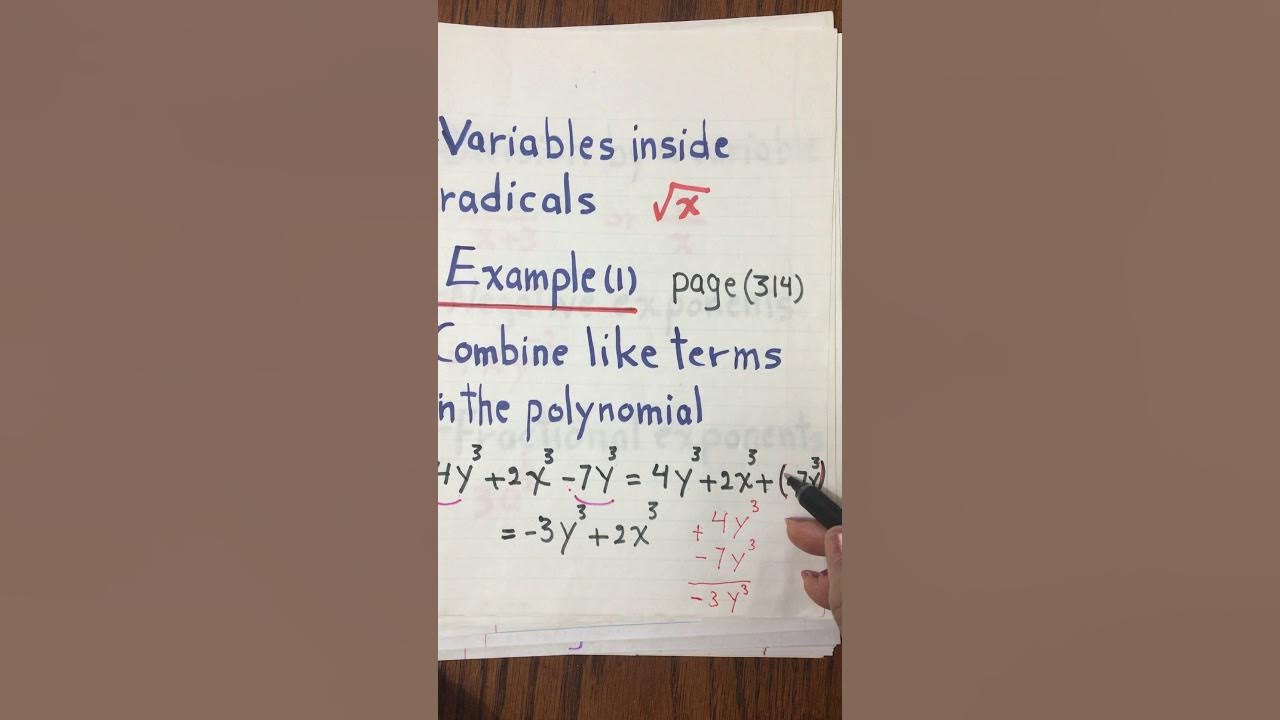 Variables inside
radicals √x
Example(1) page(314)
Combine like terms
in the polynomial
4y³ + 2x³ - 7y³ = 4y³ + 2x³ + (-7y³)
= -3y³ + 2x³
+ 4y³
- 7y³
- 3y³